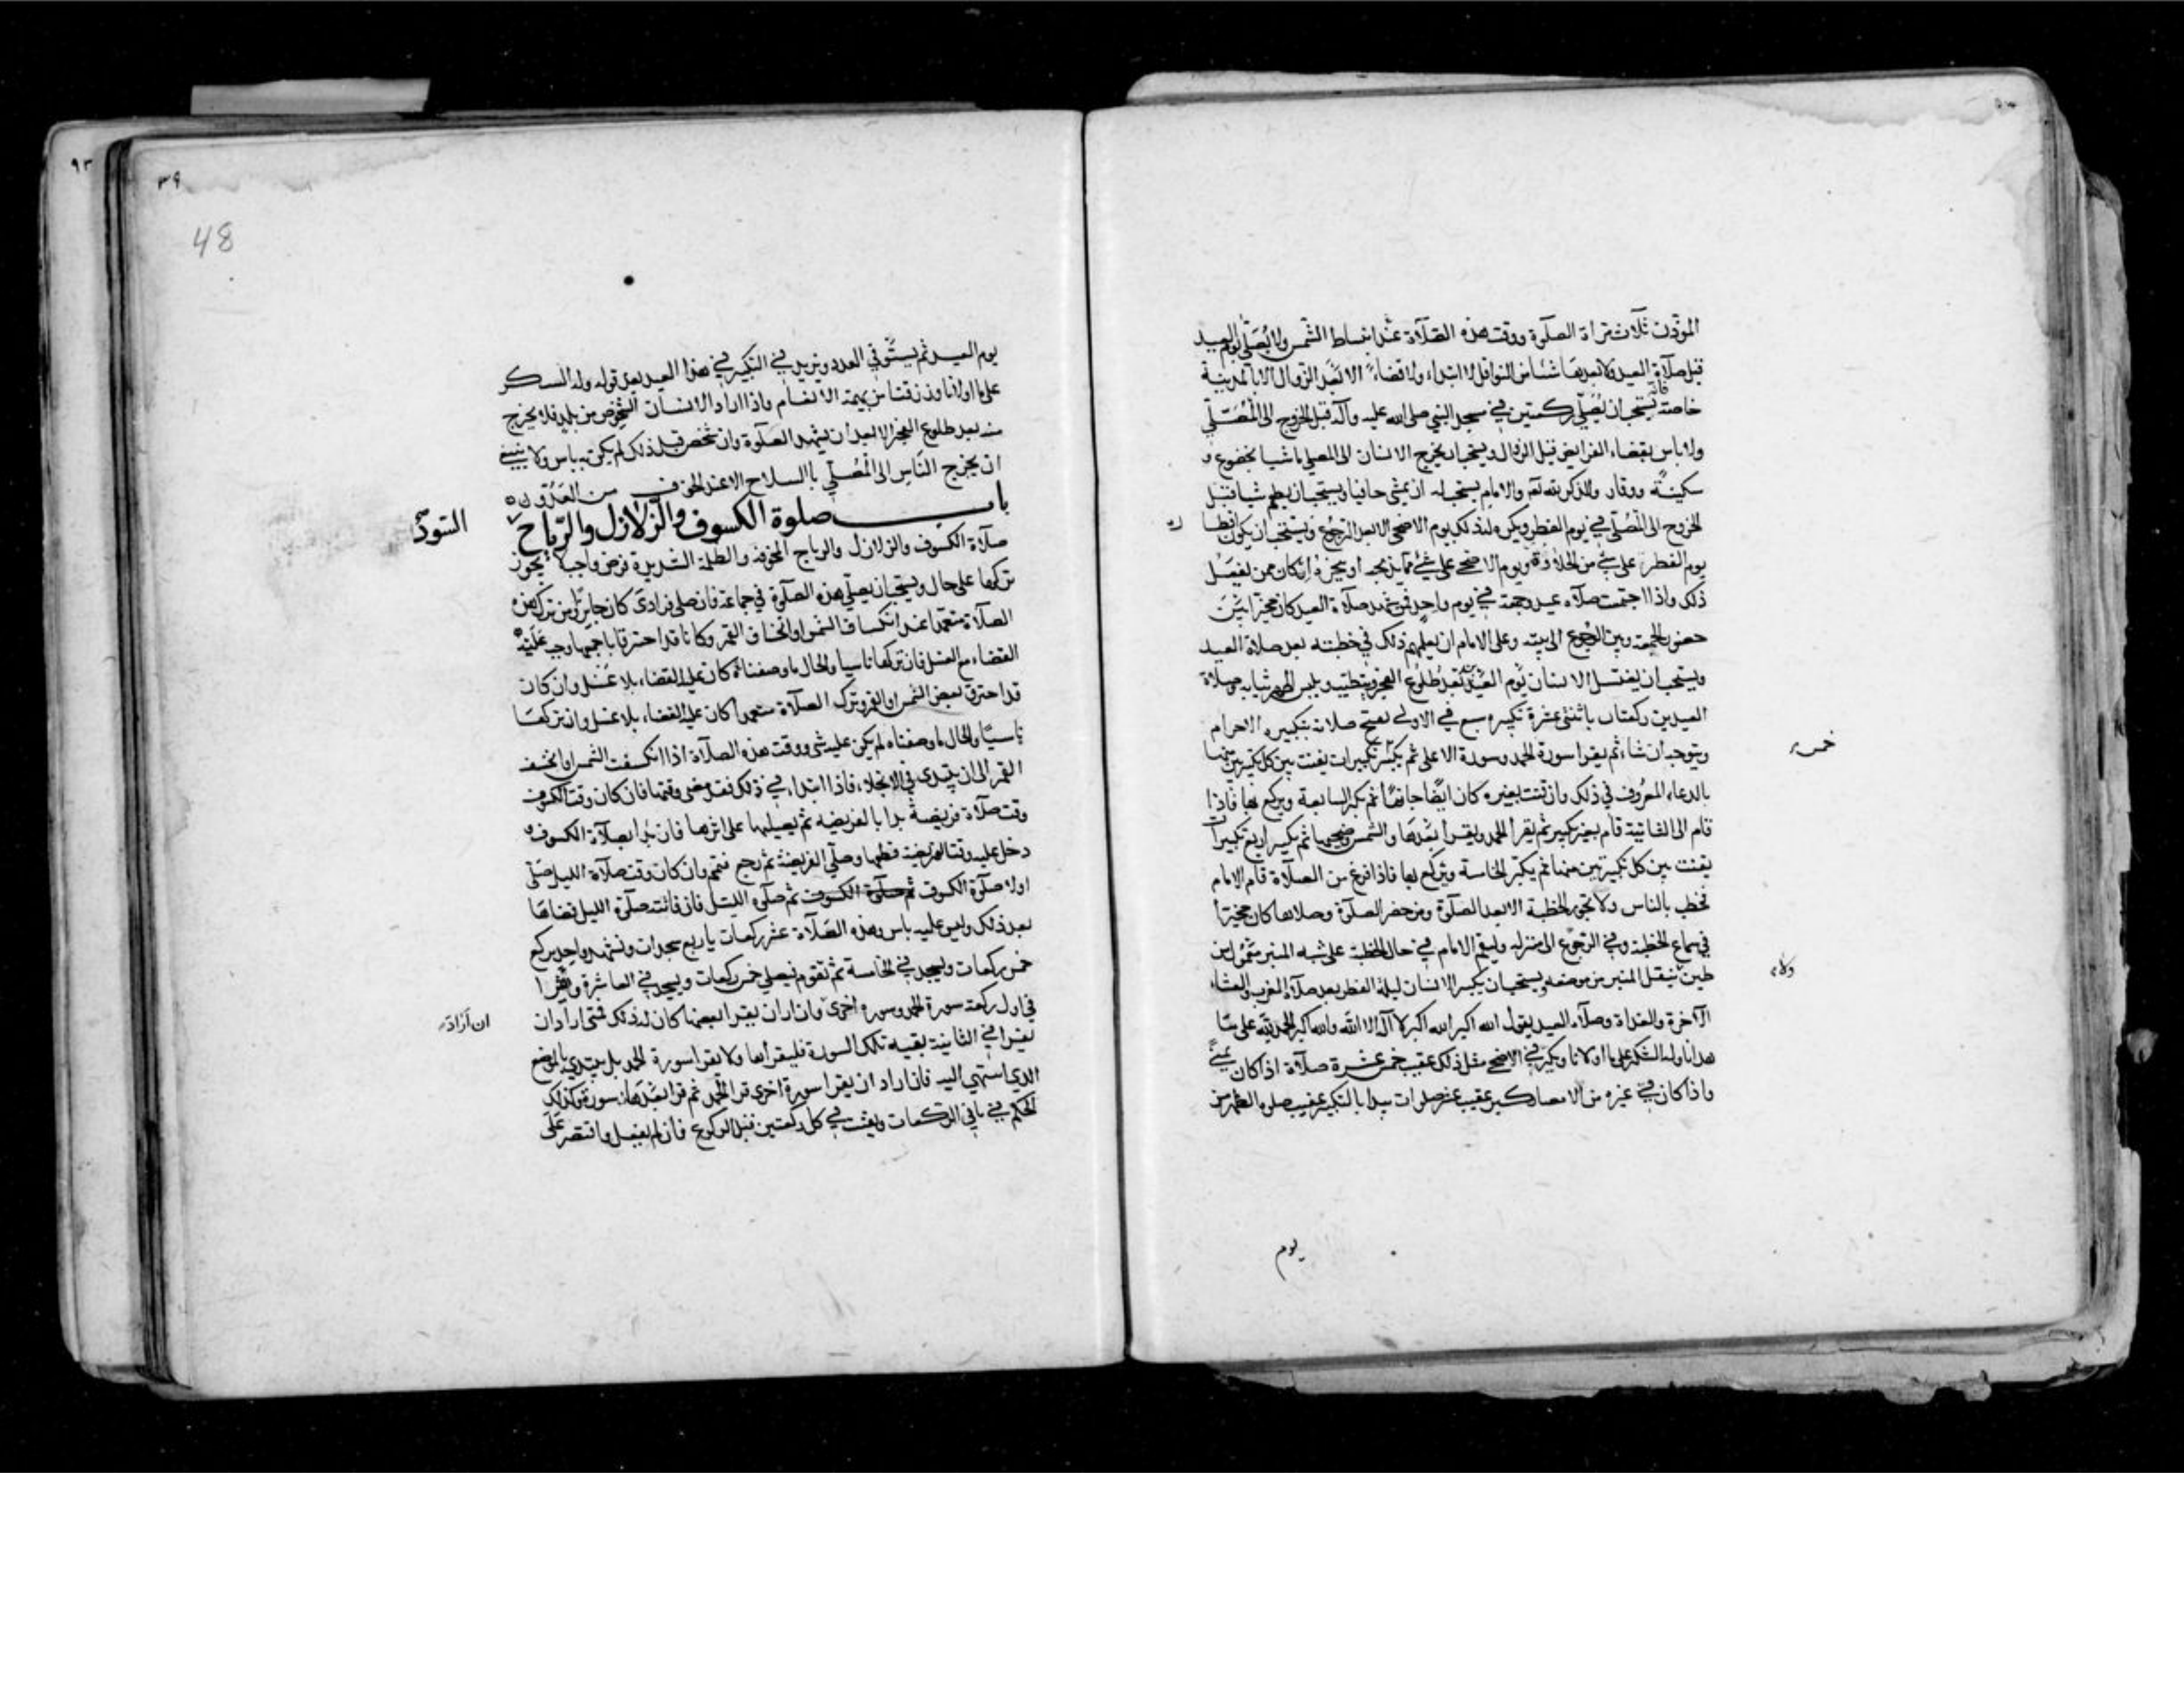 المؤذن ثلاث مرات الصلوة ووقت هذه الصلاة عند انبساط الشمس ولا يصلى يوم العيد
قبل صلاة العيد ولا بعدها شيئا من النوافل لا ابتداء ولا قضاء الا بعد الزوال الا بالمدينة
خاصة فانه يستحب ان يصلي ركعتين في مسجد النبي صلى الله عليه وآله قبل الخروج الى المصلى
ولا باس بقضاء الفرايض قبل الزوال ويستحب ان يخرج الانسان الى المصلى ماشيا بخضوع و
سكينة ووقار والذكر لله تعالى والامام يستحب له ان يمشي حافيا ويستحب ان يطعم شيا قبل
الخروج الى المصلى في يوم الفطر ويكره له ذلك يوم الاضحى الا بعد الرجوع ويستحب ان يكون افطا ره
يوم الفطر على شي من الحلاوة ويوم الاضحى على شيء مما يذبحه او ينحره ان كان ممن يفعل
ذلك واذا اجتمعت صلاة عيد وجمعة في يوم واحد فمن شهد صلاة العيد كان مخيرا بين
حضور الجمعة وبين الرجوع الى بيته وعلى الامام ان يعلمهم ذلك في خطبته بعد صلاة العيد
ويستحب ان يغتسل الانسان يوم العيد بعد طلوع الفجر ويتطيب ويلبس اطهر ثيابه وصلاة
العيدين ركعتان باثنتى عشرة تكبيره سبع في الاولى يفتتح صلاته بتكبيره الاحرام
ويتوجه ان شاء ثم يقرا سورة الحمد وسورة الاعلى ثم يكبر تكبيرات يقنت بين كل تكبيرتين منها
خمس
بالدعاء المعروف في ذلك وان قنت بغيره كان ايضا جايزا ثم يكبر السابعة ويركع بها فاذا
قام الى الثانية قام بغير تكبير ثم يقرأ الحمد ويقرأ بعدها والشمس وضحيها ثم يكبر اربع تكبيرات
يقنت بين كل تكبيرتين منها ثم يكبر الخامسة ويركع بها فاذا فرغ من الصلاة قام الامام
فخطب بالناس ولا تجوز الخطبة الا بعد الصلوة ومن حضر الصلوة وصلاها كان مخيرا
في سماع الخطبة وفي الرجوع الى منزله وليقم الامام في حال الخطبة على شبه المنبر معمول من
طين ينقل المنبر من موضعه ويستحب ان يكبر الانسان ليلة الفطر بعد صلاة المغرب والعشاء
ولا
الآخرة والغداة وصلاة العيد يقول الله اكبر الله اكبر لا اله الا الله والله اكبر الحمد لله على ما
هدانا وله الشكر على ما اولانا ويكبر في الاضحى مثل ذلك عقيب خمس عشرة صلاة اذا كان بمنى
واذا كان في غيره من الامصار كبر عقيب عشر صلوات يبدا بالتكبير عقيب صلوة الظهر من
يوم
٣٩
48
٩٣
يوم العيد ثم يستوفي العدد ويزيد في التكبير في هذا العيد بعد قوله وله الشكر
على ما اولانا ورزقنا من بهيمة الانعام واذا اراد الانسان الشخوص من بلد فلا يخرج
منه بعد طلوع الفجر الا بعد ان يشهد الصلوة وان شخص قبل ذلك لم يكن به باس ولا ينبغي
ان يخرج الناس الى المصلي باالسلاح الا عند الخوف من العدو
باب صلوة الكسوف والزلازل والرياح
السود
صلاة الكسوف والزلازل والرياح المخوفه والظلمة الشديدة فرض واجب لا يجوز
تركها على حال ويستحب ان يصلي هذه الصلوة في جماعة فان صلى فرادى كان جايزا ومن ترك هذه
الصلاة متعمدا عند انكساف الشمس او انخساف القمر وكانا قد احترقا باجمعهما وجب عليه
القضاء مع الغسل فان تركها ناسيا والحال ما وصفناه كان عليه القضاء بلا غسل وان كان
قد احترق بعض الشمس او القمر وترك الصلاة متعمدا كان عليه القضاء بلا غسل وان تركها
ناسيا والحال ما وصفناه لم يكن عليه شي ووقت هذه الصلاة اذا انكسفت الشمس او انخسف
القمر الى ان يبتدي في الانجلاء فاذا ابتداء في ذلك فقد مضى وقتها فان كان وقت الكسوف
وقت صلاة فريضة بدا بالفريضه ثم يصليها على اثرها فان بدأ بصلاة الكسوف و
دخل عليه وقت الفريضة قطعها وصلي الفريضة ثم رجع فتمم وان كان وقت صلاة الليل صلى
اولا صلوة الكسوف ثم صلوة الكسوف ثم صلوة الليل فان فاتته صلوة الليل قضاها
بعد ذلك وليس عليه باس وهذه الصلاة عشر ركعات باربع سجدات وتشهد واحد يركع
خمس ركعات ويسجد في الخامسة ثم تقوم فيصلي خمس ركعات ويسجد في العاشرة ويقرا
في اول ركعة سورة الحمد وسوره اخرى فان اراد ان يقرا بعضها كان له ذلك فمتى اراد ان
ان أراد
يقرا في الثانية بقيه تلك السورة فليقرأها ولا يقرا سورة الحمد بل يبتدي بالموضع
الذي استهى اليه فان اراد ان يقرا سورة اخرى قرا الحمد ثم قرا بعدها سورة وكذلك
الحكم في باقي الركعات ويقنت في كل ركعتين قبل الركوع فان لم يفعل واقتصر على